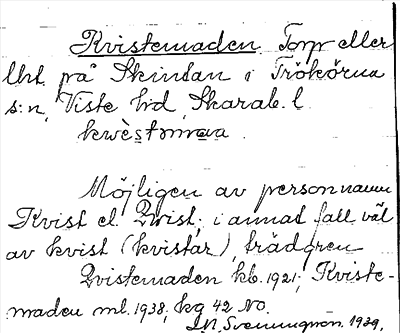 Kvistemaden. Torp eller
lht. på Skintan i Trökörna
s:n, Viste hd, Skarab. l.
kwèstəmaa
Möjligen av personnamn
Kvist el. Qvist; i annat fall väl
av kvist (kvistar), trädgren
Qvistemaden kb. 1921; Kviste-
maden ml. 1938, kg 42 NO.
Svenungson, 1939.